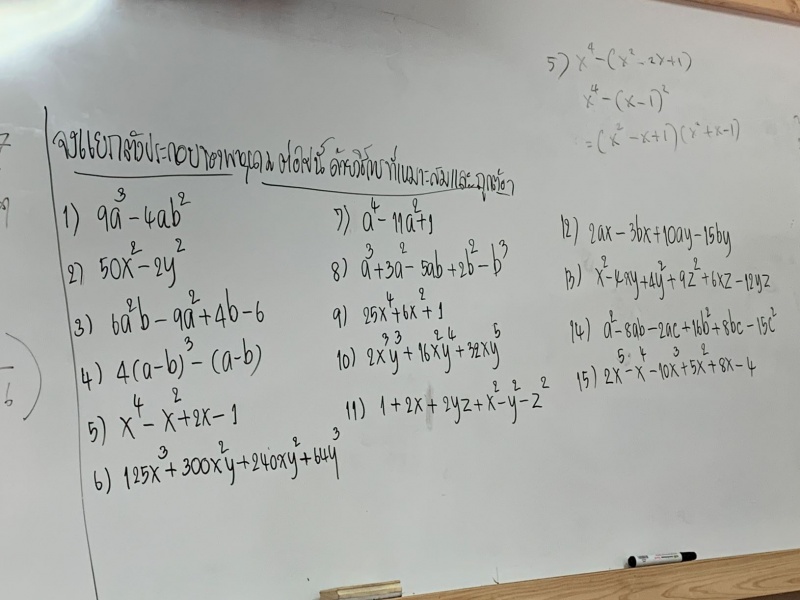 จงแยกตัวประกอบของพหุนาม ต่อไปนี้ ด้วยวิธีการที่เหมาะสมและถูกต้อง
1) 9a³ - 4ab²
2) 50x² - 2y²
3) 6a²b - 9a² + 4b - 6
4) 4(a-b)³ - (a-b)
5) x⁴ - x² + 2x - 1
6) 125x³ + 300x²y + 240xy² + 64y³
7) a⁴ - 11a² + 1
8) a³ + 3a² - 5ab + 2b² - b³
9) 25x⁴ + 6x² + 1
10) 2x³y³ + 16x²y⁴ + 32xy⁵
11) 1 + 2x + 2yz + x² - y² - z²
12) 2ax - 3bx + 10ay - 15by
13) x² - 4xy + 4y² + 9z² + 6xz - 12yz
14) a² - 8ab - 2ac + 16b² + 8bc - 15c²
15) 2x⁵ - x⁴ - 10x³ + 5x² + 8x - 4
5) x⁴ - (x² - 2x + 1)
x⁴ - (x-1)²
= (x² - x + 1)(x² + x - 1)